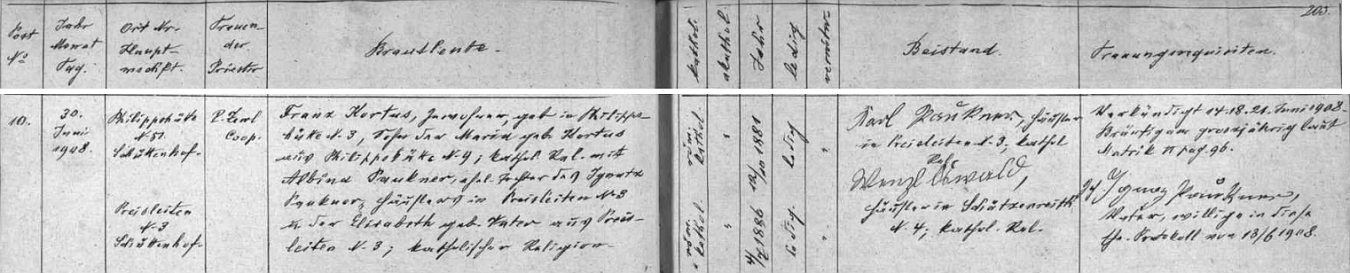 203.
Post
No
Jahr
Monat
Tag.
Ort Nr.
Haupt-
Trauen-
der
Priester
Brautleute.
kathol.
akathol.
Jahr
ledig
verwitw.
Beistand.
10.
30.
Juni
1908.
Philippshütte
N. 51.
Schüttenhof.
Preisleiten
N. 3
Schüttenhof.
P. Karl
Coop.
Franz Kortus, Inwohner, geb in Philipps-
hütte N. 3, Sohn der Maria geb Kortus
aus Philippshütte N. 4; kathol. Rel. mit
Albina Paukner, ehel. Tochter des Ignatz
Paukner, Häuslers in Preisleiten No 3
u. der Elisabeth geb. Vater aus Preis-
leiten N. 3; katholischer Religion.
röm.
kathol.
"
1881
ledig
"
röm.
kathol.
"
1886
ledig.
"
Karl Paukner, Häusler
in Preisleiten N. 3, kathol
Rel.
Wenzl Oswald,
Häusler in
N. 4; kathol. Rel.
Verkündigt 14. 18. 21. Juni 1908.
Bräutigam grossjährig laut
Matrik pag. 96.
Ignaz Paukner,
Vater, willigt in diese
Ehe. Protokoll vom 13/6 1908.